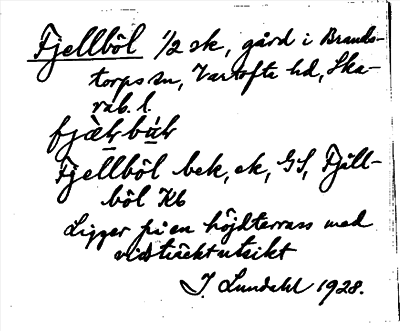 Fjellböl 1/2 sk, gård i Brands-
torps sn, Vartofta hd, Ska-
rab. l.
fjæḷbúḷ
Fjellböl bek, ek, GS, Fjäll-
böl Kb
Ligger på en höjdterrass med
vidsträckt utsikt
J. Lundahl 1928.